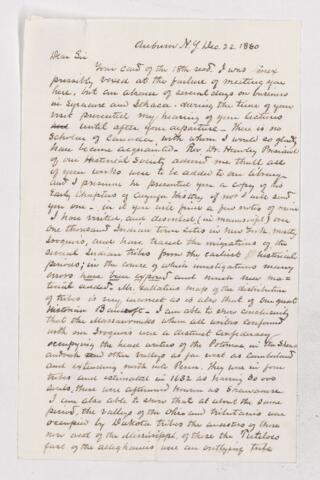 Auburn N.Y. Dec. 22. 1880
Dear Sir
Your card of the 18th recd. I was inex
pressibly vexed at the failure of meeting you
here, but an absence of several days on business
in Syracuse and Ithaca - during the time of your
visit prevented my hearing of your lectures
until after your departure. There is no
Scholar of Canada with whom I would so gladly
have become acquainted. Rev. Dr. Hawley President
of our Historical Society advised me that all
of your works were to be added to our library -
and I presume he presented you a copy of his
Early Chapters of Cayuga history if not I will send
you one - in it you will find a few notes of mine
I have visited, and described (in manuscript) over
one thousand Indian town sites in New York mostly
Iroquois, and have traced the migrations of the
several Indian tribes from the earliest historical
periods; in the course of which investigations many
errors have been exposed and much new ma-
terial added. Mr. Gallatins map of the distribution
of tribes is very incorrect as is also that of our great
historian Bancroft. I am able to show conclusively
that the Massawomekes whom all writers confound
with our Iroquois were a distinct confederacy -
occupying the head waters of the Potomac, in the Shen
andoah and other valleys as far west as Cumberland
and extending north into Penn. They were in four
tribes and estimated in 1632 as having 30.000
souls, they were afterward known as
I am also able to show that at about the same
period, the valleys of the Ohio and tributaries was
occupied by Dakota tribes the ancestors of those
now west of the Mississippi, of these the Tuteloes
east of the alleghanies were an outlying tribe